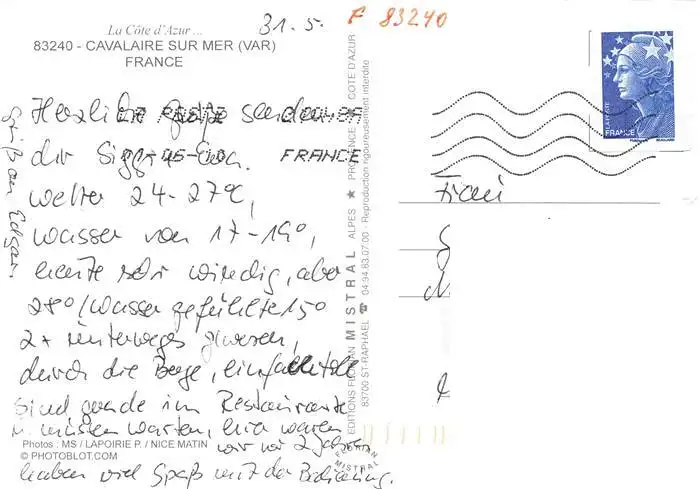 La Côte d'Azur ...
83240 - CAVALAIRE SUR MER (VAR)
FRANCE
31. 5.
F 83240
Herzliche Grüße senden
dir Siggi + Eva.
Wetter 24-27°C,
Wasser von 17-19°,
heute sehr windig, aber
28°/Wasser gefühlte 15°
2x unterwegs gewesen,
durch die Berge, einfach toll
sind gerade im Restaurante
u. müssen warten, hier waren
wir vor 2 Jahren
haben viel Spaß mit der Bedienung.
Gruß an Edgar.
Photos : MS / LAPOIRIE P. / NICE MATIN
© PHOTOBLOT.COM
EDITIONS FLORIAN MISTRAL ALPES ★ PROVENCE ★ COTE D'AZUR
83700 ST-RAPHAËL ☎ 04.94.83.07.00 - Reproduction rigoureusement interdite
FLORIAN
MISTRAL
FRANCE
LA POSTE
FRANCE
Frau